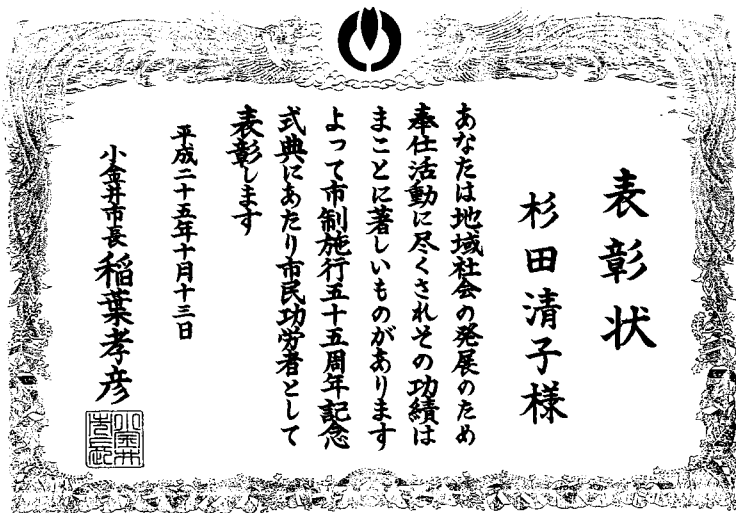 表彰状
杉田清子様
あなたは地域社会の発展のため
奉仕活動に尽くされその功績は
まことに著しいものがあります
よって市制施行五十五周年記念
式典にあたり市民功労者として
表彰します
平成二十五年十月十三日
小金井市長 稲葉孝彦